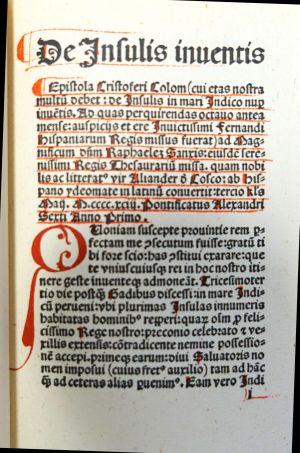 De Insulis inventis
Epistola Cristoferi Colom (cui etas nostra
multū debet: de Insulis in mari Indico nup
invētis. Ad quas perquirendas octavo antea
mense: auspicijs et ere Invictissimi Fernandi
Hispaniarum Regis missus fuerat) ad Mag-
nificum dūm Raphaelez Sanxis: eiusdē sere-
nissimi Regis Thesaurariū missa. quam nobi
lis ac litterat⁹ vir Aliander d̄ Cosco: ab His
pano ydeomate in latinū convertit: tercio kl̄s
Maij. M.cccc.xciij. Pontificatus Alexandri
Sexti Anno Primo.
Quoniam suscepte provintie rem p
fectam me ꝯsecutum fuisse: gratū ti
bi fore scio: has ꝯstitui exarare: que
te uniuscuiusq̄ rei in hoc nostro iti-
nere geste inventeq̄ admoneāt. Tricesimoter
tio die postq̄ Gadibus discessi: in mare Indi
cū perveni: ubi plurimas Insulas innumeris
habitatas hominib⁹ repperi: quaz om̄ p felic
cissimo Rege nostro: preconio celebrato et ve
xillis extensis: cōtradicente nemine possessio-
nē accepi. primeq̄ earum: divi Salvatoris no
men imposui (cuius fret⁹ auxilio) tam ad hāc
q̄ ad ceteras alias pvenim⁹. Eam vero Indi
i